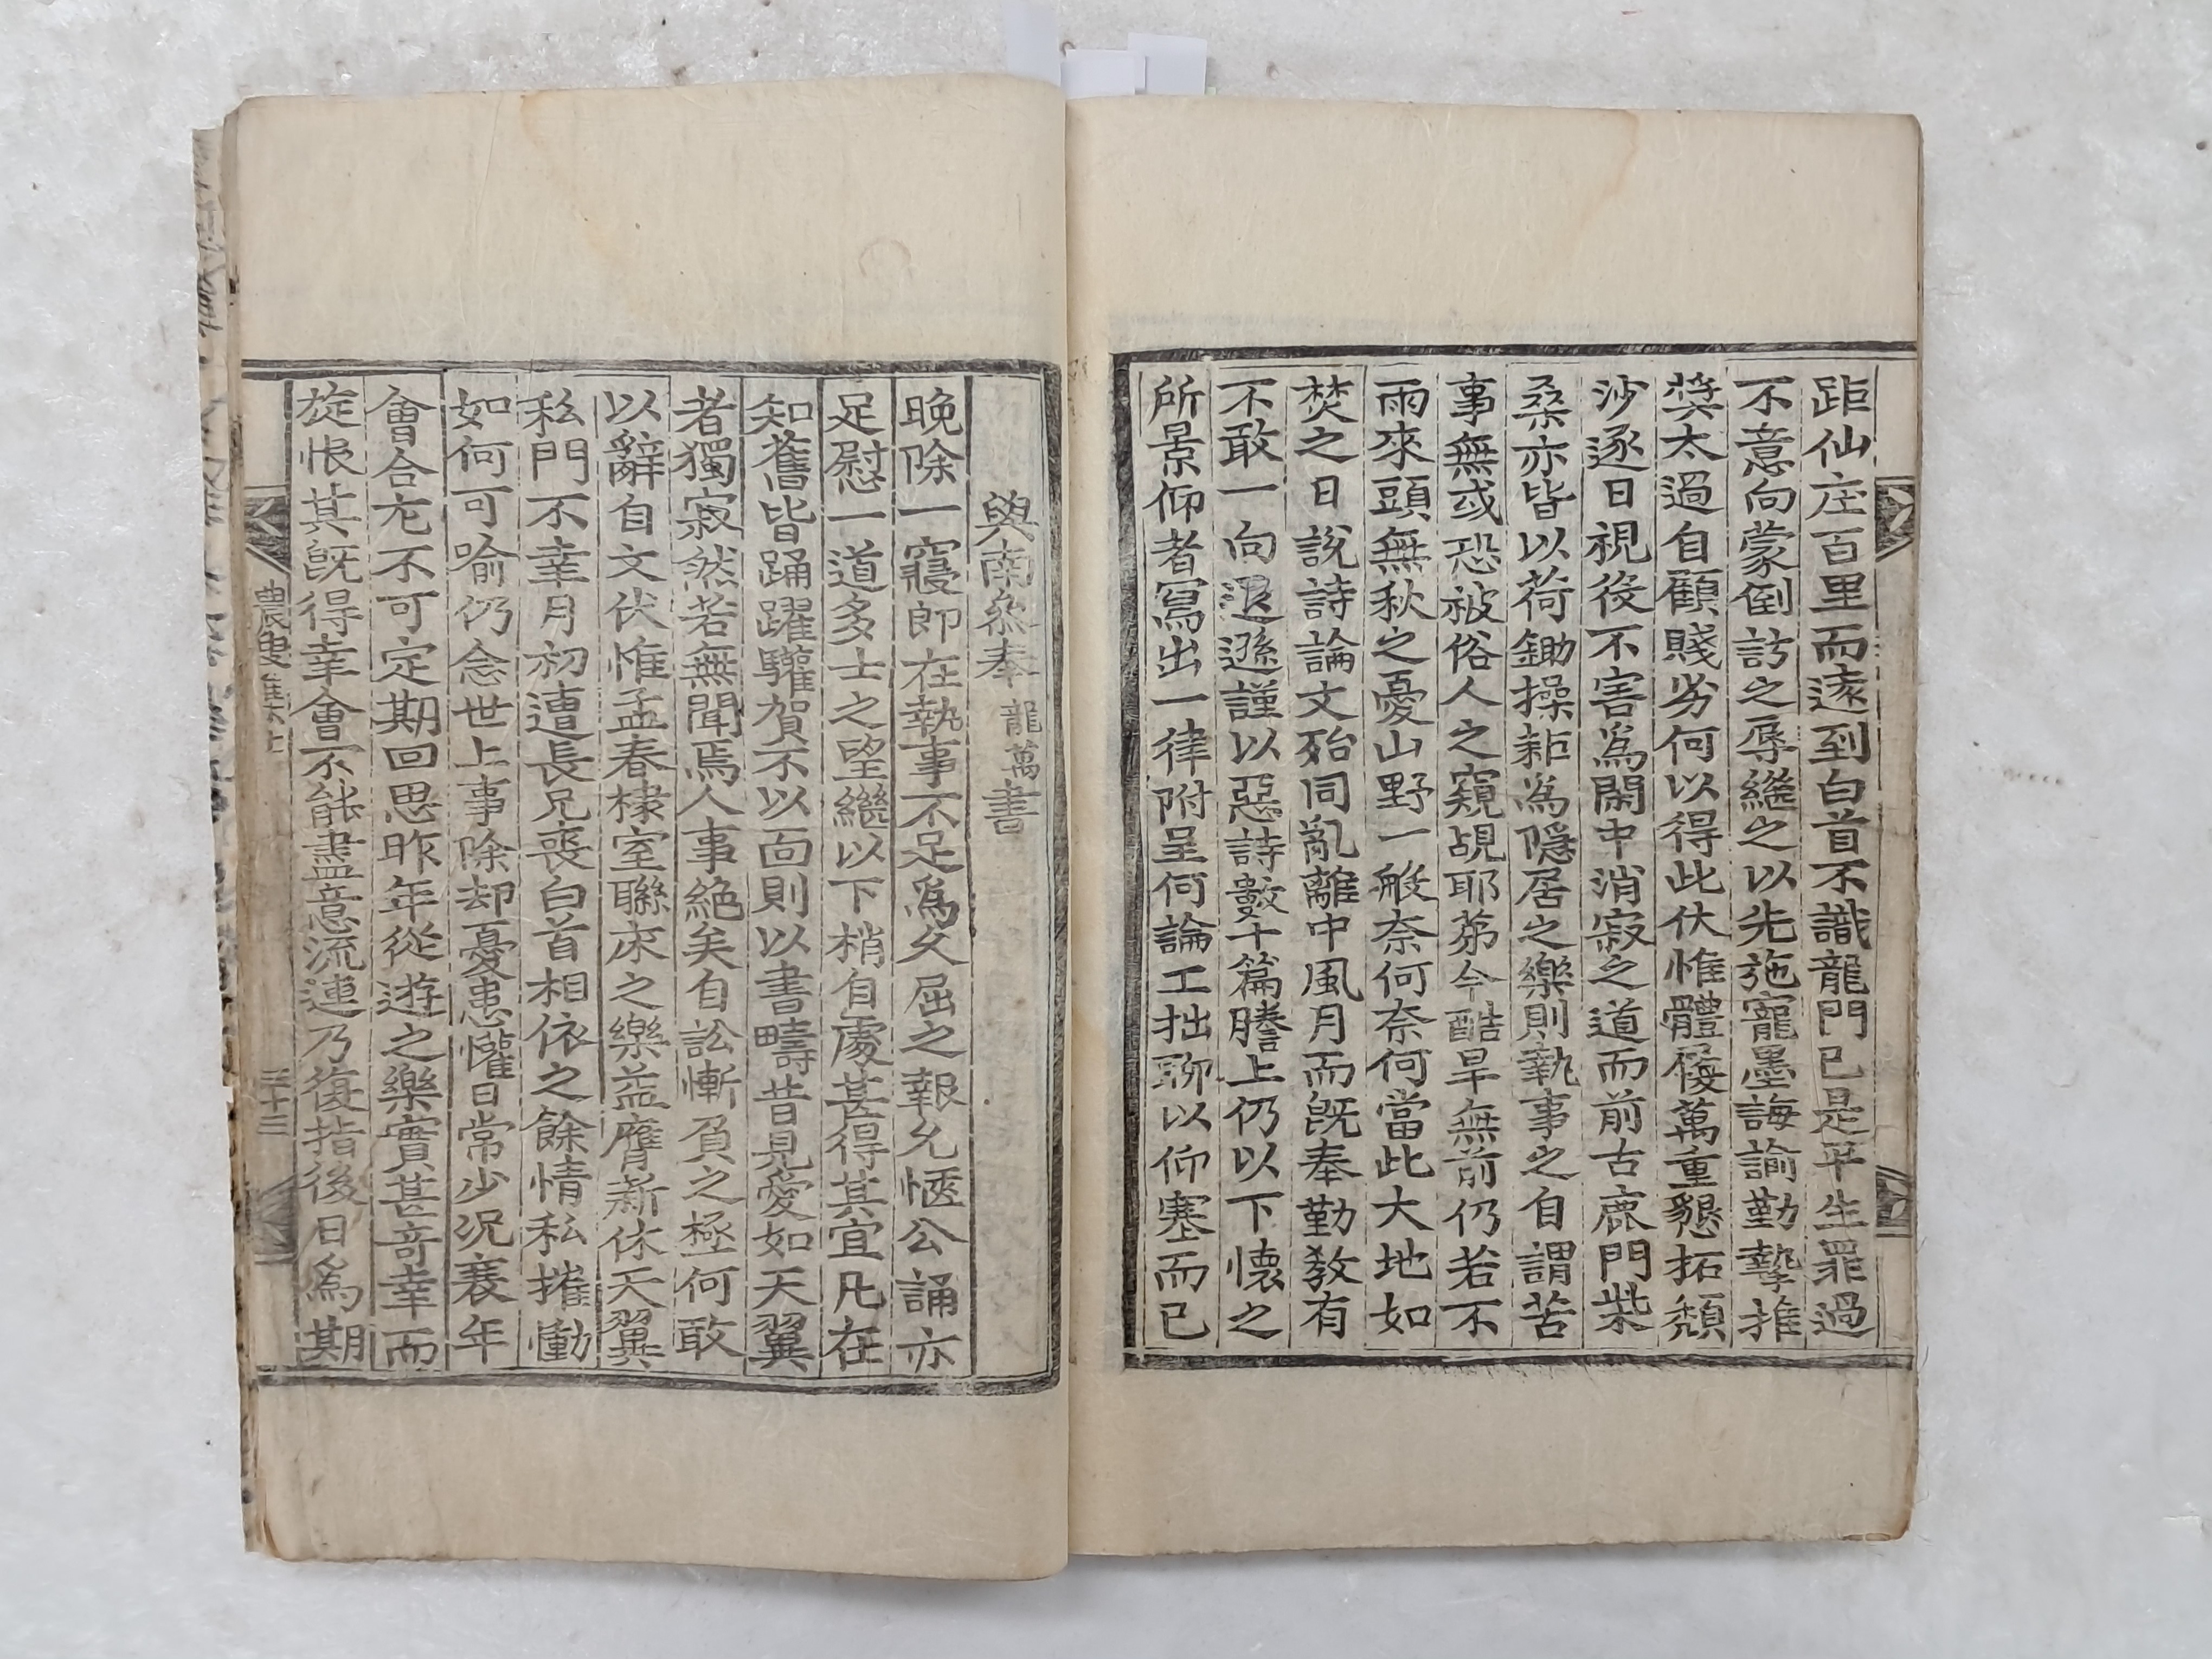 距仙庄百里而遠到白首不識龍門已是平生罪過
不意向蒙倒訪之辱繼之以先施寵墨誨諭勤摯推
奬太過自顧賤劣何以得此伏惟體履萬重懇拓頹
沙逐日視役不害爲閑中消寂之道而前古鹿門柴
桑亦皆以荷鋤操耟爲隱居之樂則執事之自謂苦
事無或恐被俗人之窺覘耶苐今酷旱無前仍若不
雨來頭無秋之憂山野一般奈何奈何當此大地如
焚之日說詩論文殆同亂離中風月而旣奉勤敎有
不敢一向退遜謹以惡詩數十篇謄上仍以下懷之
所景仰者寫出一律附呈何論工拙聊以仰塞而已
與南叅奉龍萬書
晩除一窹卽在執事不足爲久屈之報允愜公誦亦
足慰一道多士之望繼以下梢自處甚得其宜凡在
知舊皆踊躍驩賀不以面則以書疇昔見愛如天翼
者獨寂然若無聞焉人事絶矣自訟慚負之極何敢
以辭自文伏惟孟春棣室聯床之樂益膺新休天翼
私門不幸月初遭長兄喪白首相依之餘情私摧慟
如何可喻仍念世上事除却憂患懽日常少况衰年
會合尤不可定期回思昨年從遊之樂實甚奇幸而
旋恨其旣得幸會不能盡意流連乃復指後日爲期
農叟集
三十三